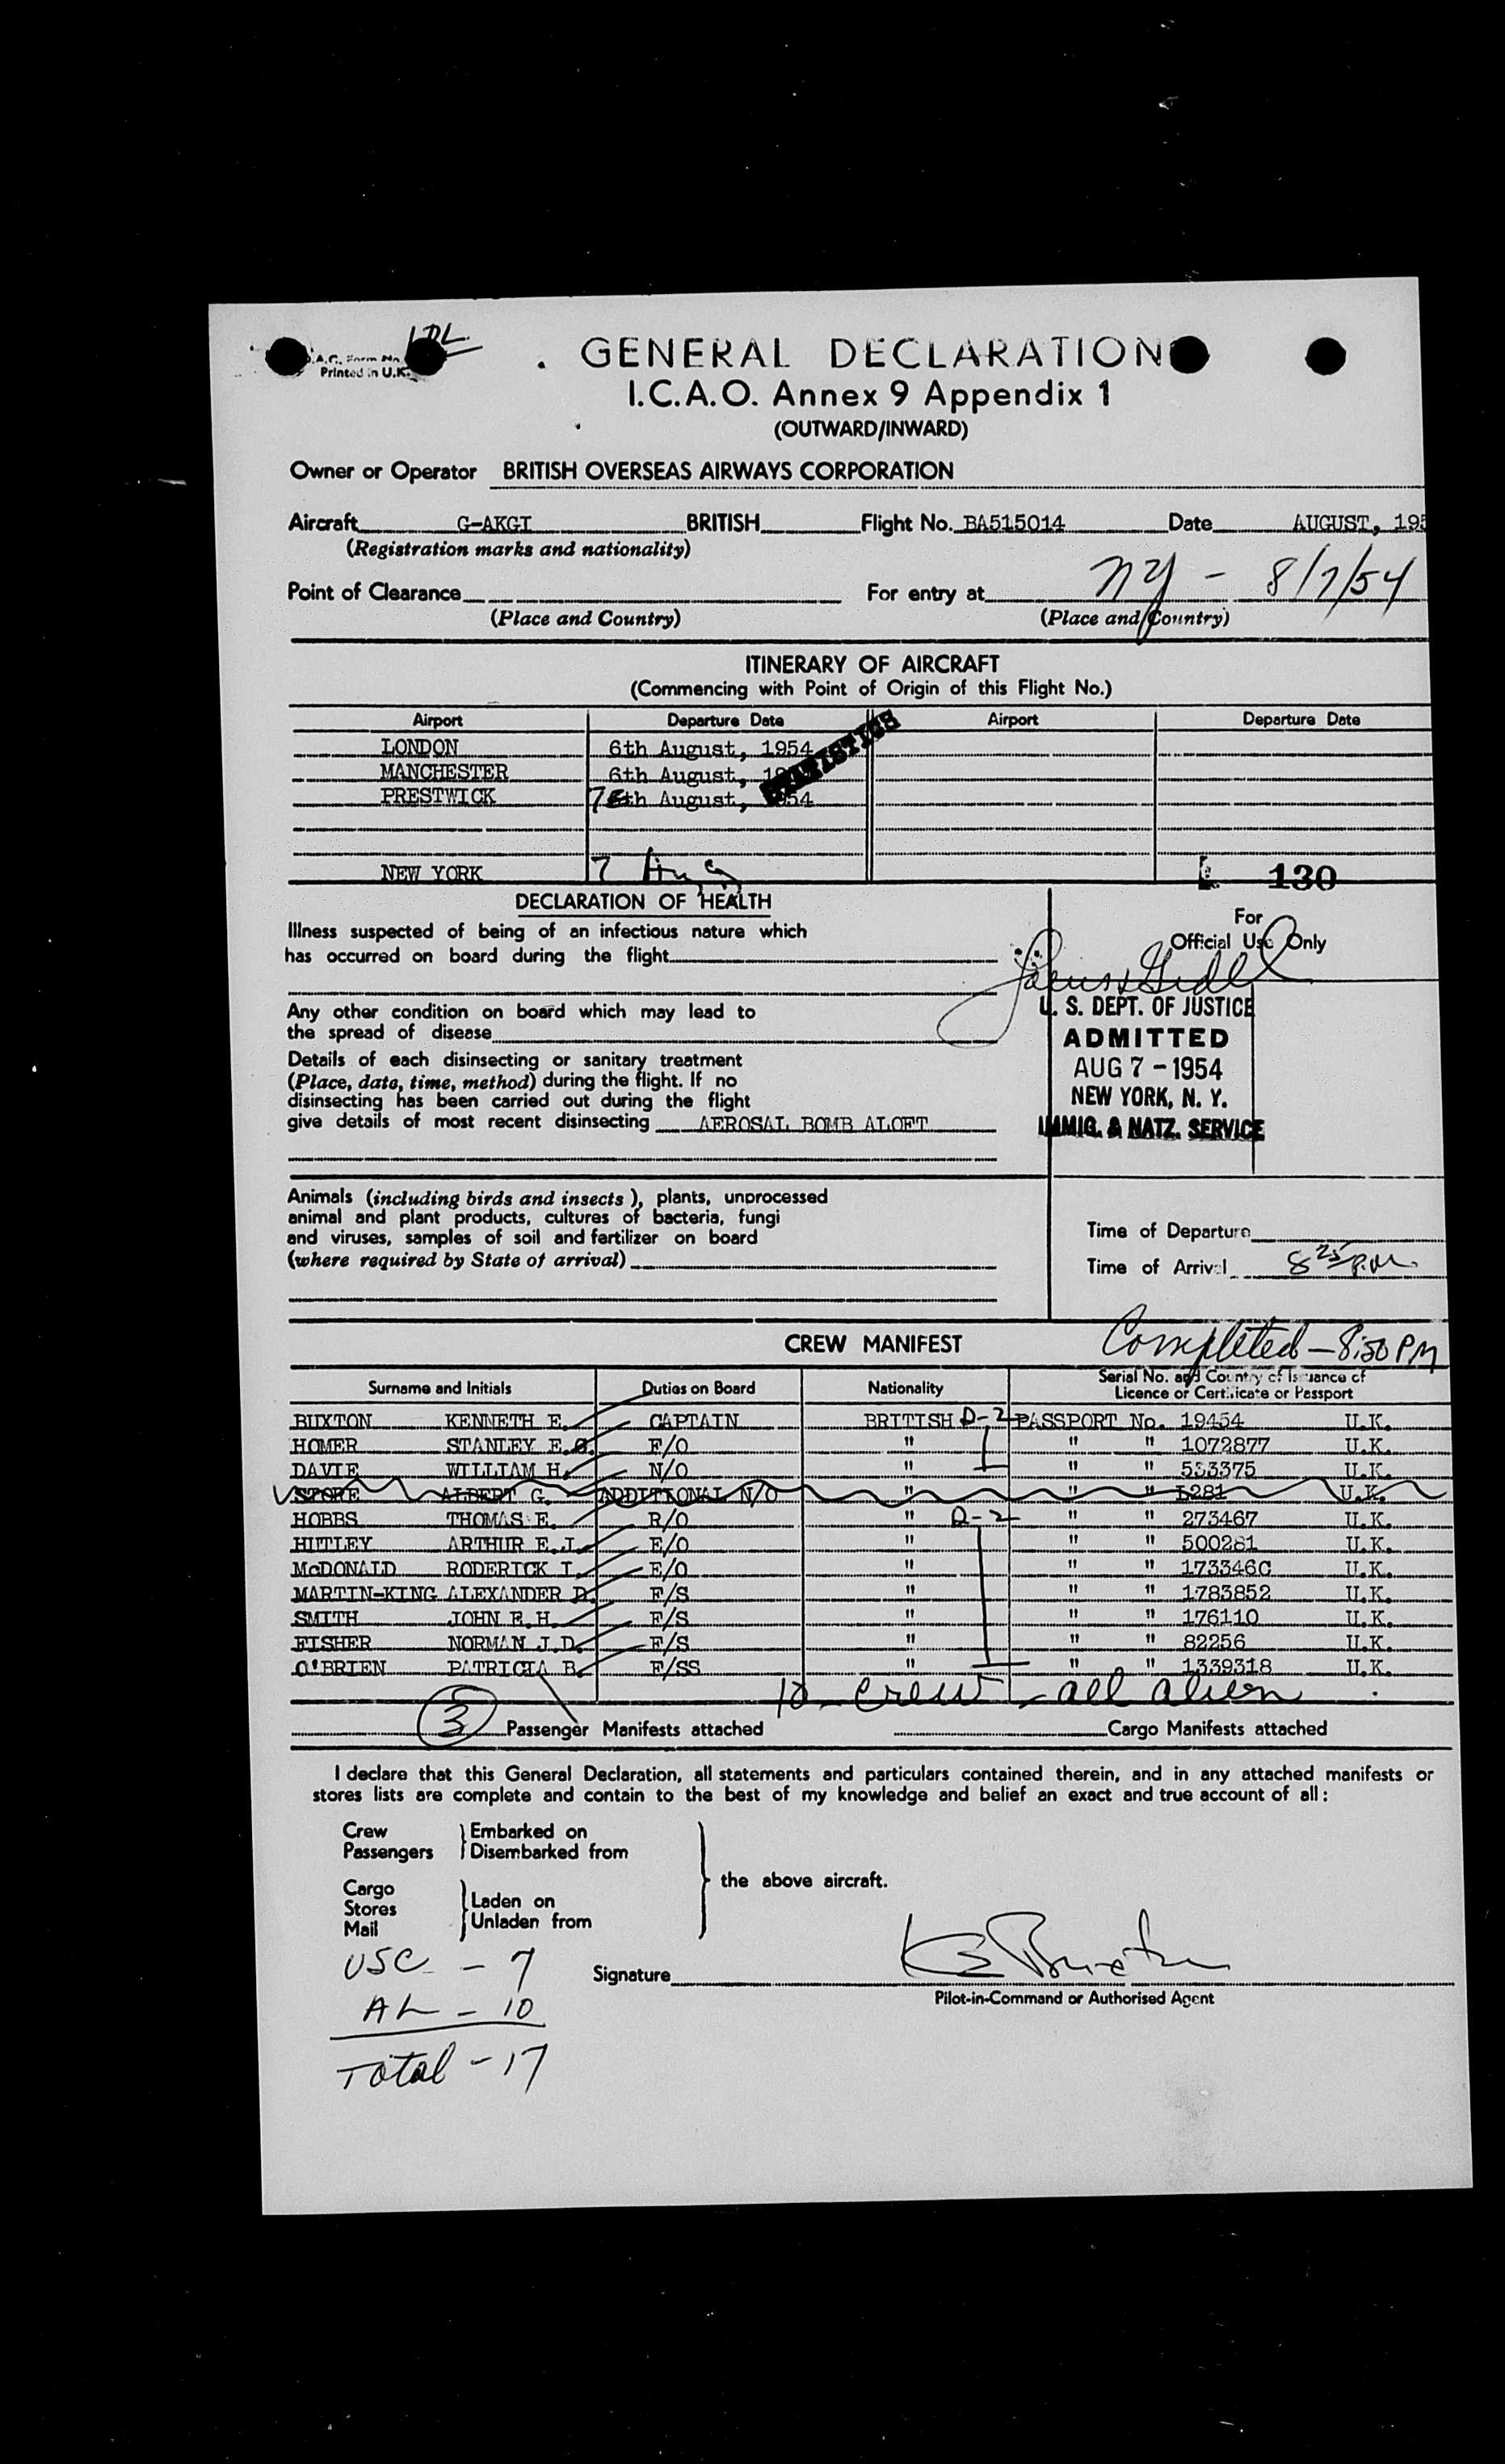 LDL
Printed in U.K.
GENERAL DECLARATION
I.C.A.O. Annex 9 Appendix 1
(OUTWARD/INWARD)
Owner or Operator BRITISH OVERSEAS AIRWAYS CORPORATION
Aircraft G-AKGI BRITISH Flight No. BA515014 Date AUGUST, 195
(Registration marks and nationality)
Point of Clearance For entry at NY - 8/7/54
(Place and Country) (Place and Country)
ITINERARY OF AIRCRAFT
(Commencing with Point of Origin of this Flight No.)
Airport Departure Date Airport Departure Date
LONDON 6th August, 1954
MANCHESTER 6th August,
PRESTWICK 7th August, 1954
STATISTICS
NEW YORK 7 Aug
130
DECLARATION OF HEALTH
Illness suspected of being of an infectious nature which
has occurred on board during the flight
For
Official Use Only
Any other condition on board which may lead to
the spread of disease
U. S. DEPT. OF JUSTICE
ADMITTED
AUG 7 - 1954
NEW YORK, N. Y.
IMMIG. & NATZ. SERVICE
Details of each disinsecting or sanitary treatment
(Place, date, time, method) during the flight. If no
disinsecting has been carried out during the flight
give details of most recent disinsecting AEROSAL BOMB ALOFT
Animals (including birds and insects), plants, unprocessed
animal and plant products, cultures of bacteria, fungi
and viruses, samples of soil and fertilizer on board
(where required by State of arrival)
Time of Departure
Time of Arrival 8 25 P.M.
CREW MANIFEST Completed - 8:50 PM
Surname and Initials Duties on Board Nationality Serial No. and Country of Issuance of
Licence or Certificate or Passport
BUXTON KENNETH E. CAPTAIN BRITISH D-2 PASSPORT No. 19454 U.K.
HOMER STANLEY E.G. F/O " " " 1072877 U.K.
DAVIE WILLIAM H. N/O " " " 533375 U.K.
STORE ALBERT G. ADDITIONAL N/O " " " L281 U.K.
HOBBS THOMAS E. R/O " D-2 " " 273467 U.K.
HUTLEY ARTHUR E.J. E/O " " " 500281 U.K.
McDONALD RODERICK I. E/O " " " 173346C U.K.
MARTIN-KING ALEXANDER D. F/S " " " 1783852 U.K.
SMITH JOHN E.H. F/S " " " 176110 U.K.
FISHER NORMAN J.D. F/S " " " 82256 U.K.
O'BRIEN PATRICIA B. F/SS " " " 1339318 U.K.
10 crew - all alien
3 Passenger Manifests attached Cargo Manifests attached
I declare that this General Declaration, all statements and particulars contained therein, and in any attached manifests or
stores lists are complete and contain to the best of my knowledge and belief an exact and true account of all:
Crew Embarked on
Passengers Disembarked from
the above aircraft.
Cargo
Stores Laden on
Mail Unladen from
USC - 7
AL - 10
Total - 17
Signature
Pilot-in-Command or Authorised Agent